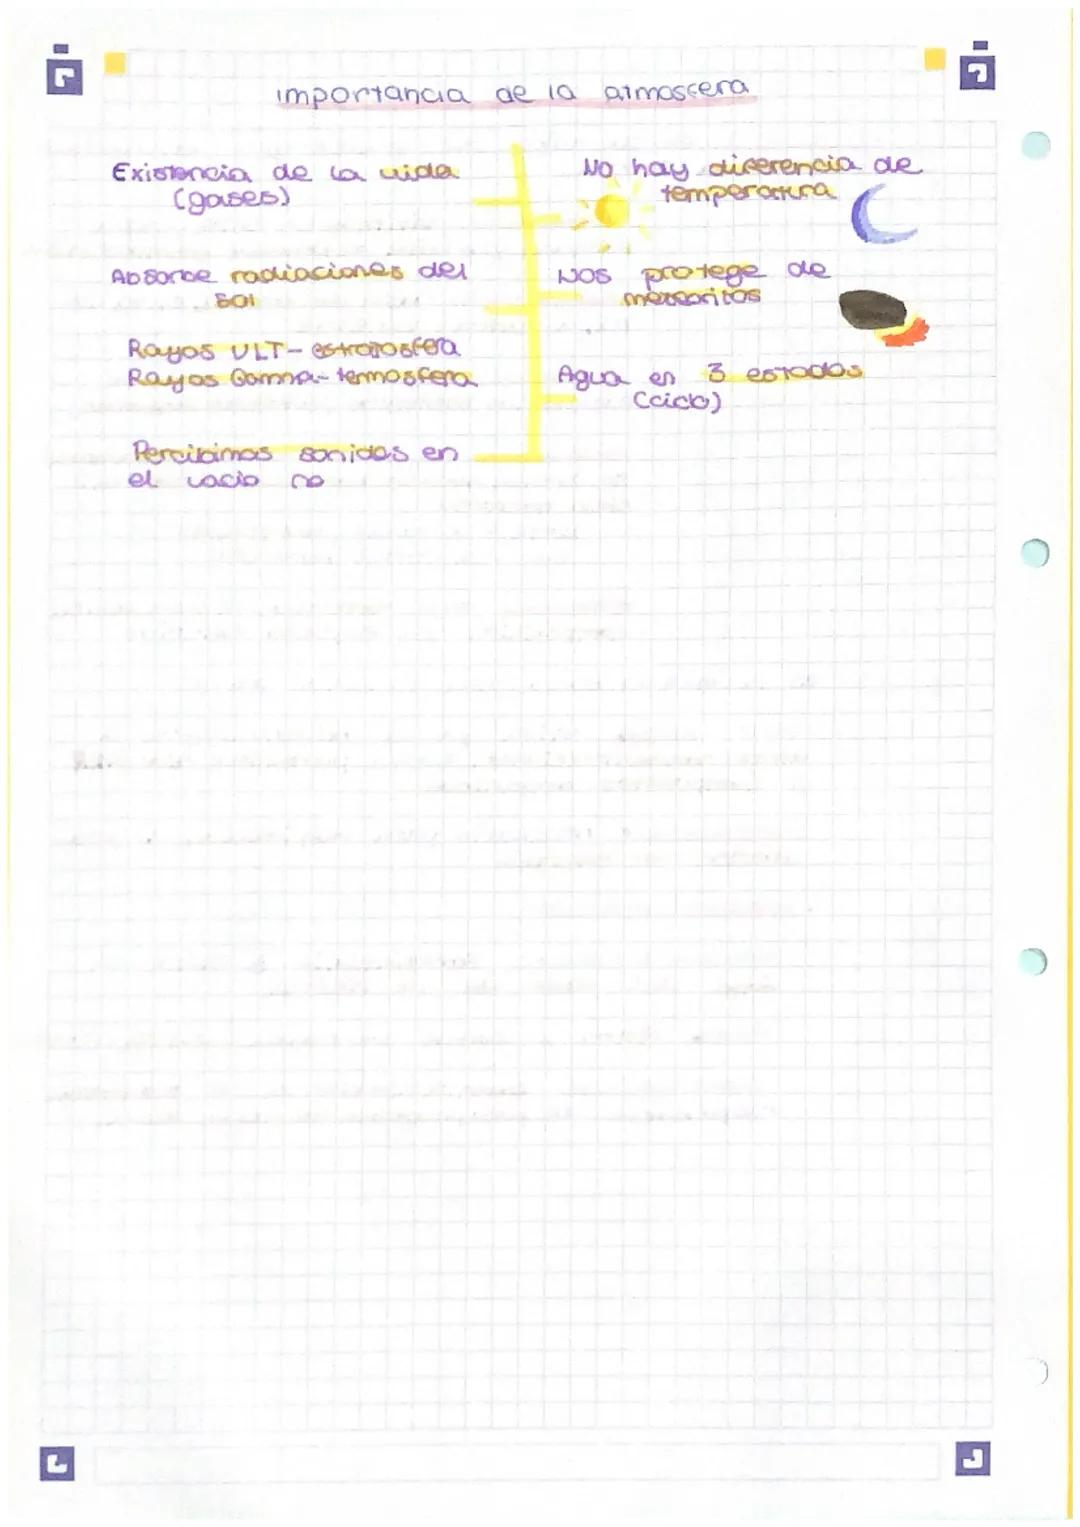 importancia de la atmosfera
Existencia de la vida
(gases)
Absorbe radiaciones del
sol
Rayos ULT- estratosfera
Rayos Gamma- termosfera
Percibimos sonidos en
el vacio no
No hay diferencia de
temperatura
Nos protege de
meteoritos
Agua en 3 estados
(ciclo)